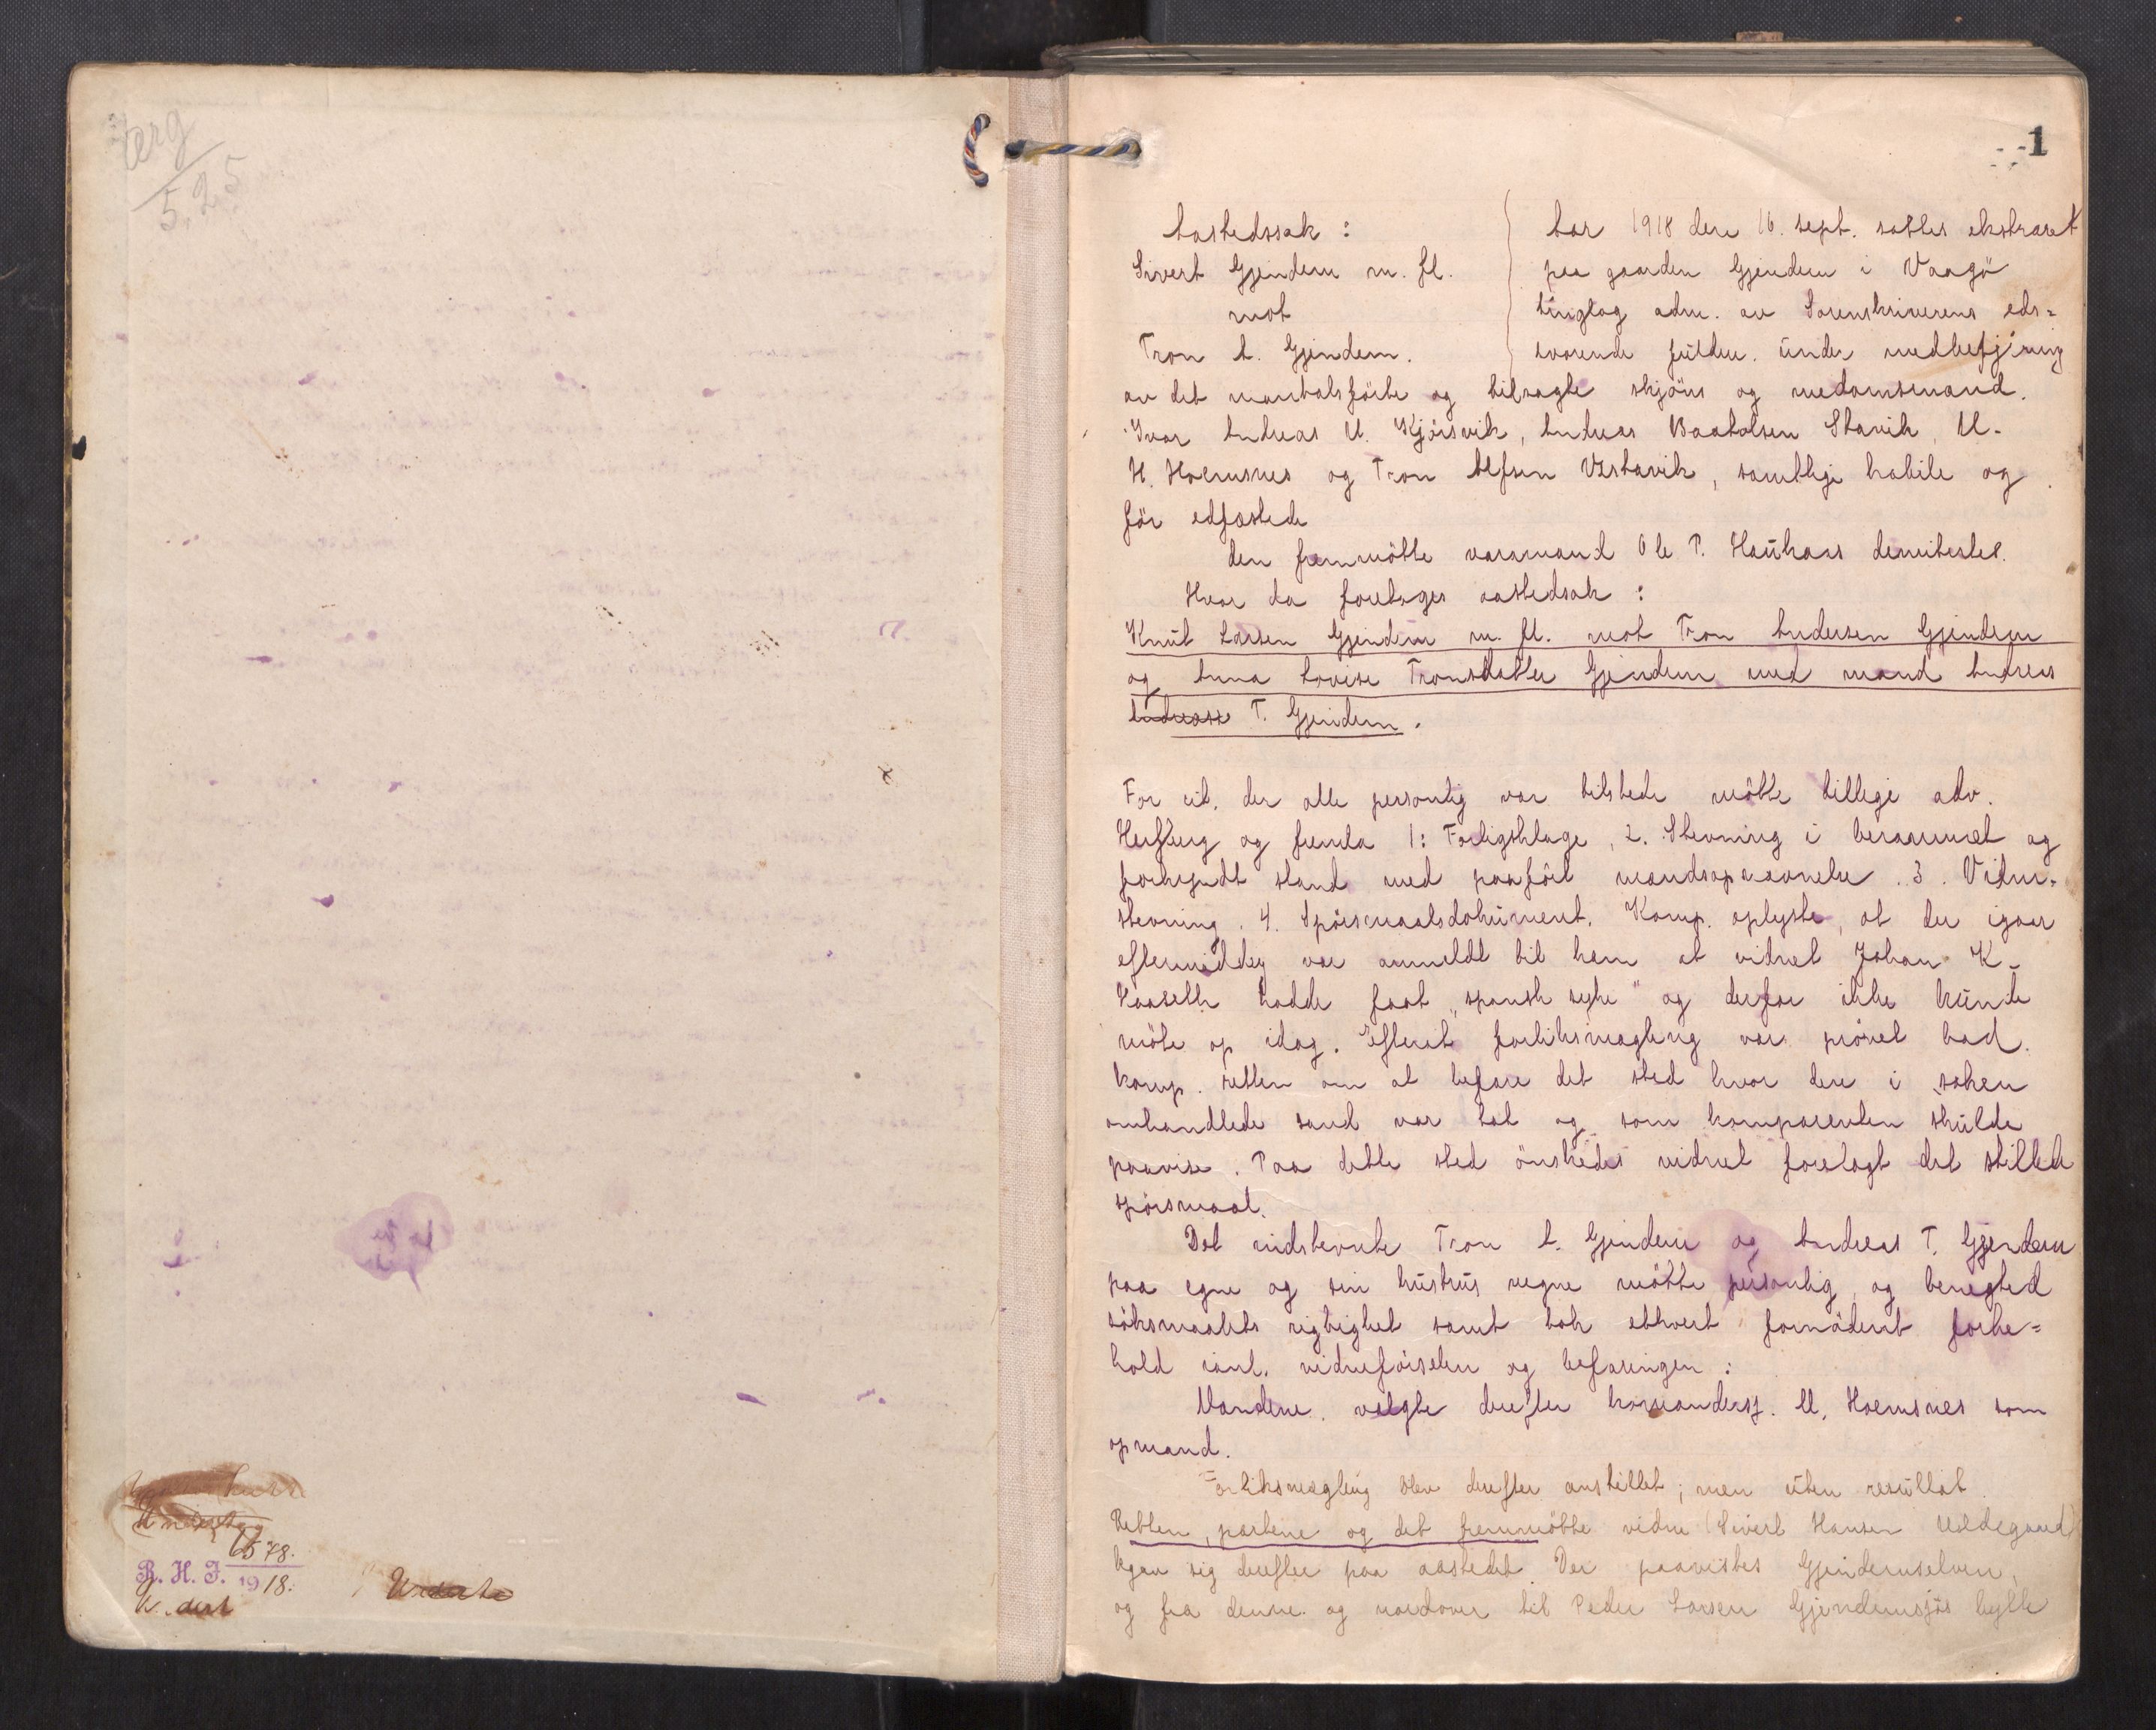 berg
5.25
6578.
R. H. F. 1918.
1
Aastedssak :
Sivert Gjendem m. fl.
mot
Tron A. Gjendem.
Aar 1918 den 16. sept. sattes ekstraret
paa gaarden Gjendem i Vaagö
tinglag adm. av Sorenskriverens eds=
svorende fuldm. under medbetjening
av det mantalsförte og tilsagte skjöns og medomsmænd.
Ivar Andreas M. Kjörsvik, Andreas Baatolsen Stavik, M.
H. Hoemsnes og Tron Alfsen Vestavik, samtlige habile og
för edfæstede
Den fremmötte varamand Ole P. Haukaas demitertes.
Hvor da foretages aastedsak :
Knut Larsen Gjendem m. fl. mot Tron Andersen Gjendem
og Anna Lovise Tronsdatter Gjendem med mand Andreas
Andreass T. Gjendem.
For cit. der alle personlig var tilstede mötte tillige adv.
Hertzberg og fremla 1: Forligsklage, 2. Stevning i berammet og
forkyndt stand med paafört mandsopnævnelse. 3. Vidne-
stevning. 4. Spörsmaalsdokument. Komp. oplyste, at der igaar
eftermiddag var anmeldt til ham at vidnet Johan K.
Haaseth hadde faat "spansk syke" og derfor ikke kunde
möte op idag. Efterat forliksmægling var prövet bad
komp. retten om at befare det sted hvor den i saken
omhandlede sand var tat og som komparenten skulde
paavise. Paa dette sted önskedes vidnet forelagt det stillede
spörsmaal.
Det indstevnte Tron A. Gjendem og Andreas T. Gjendem
paa egne og sin hustrus vegne mötte personlig og benegted
söksmaalets rigtighet samt tok ethvert fornödent forbe=
hold ianl. vidneförselen og befaringen :
Mændene valgte derefter kommandersj. M. Hoemsnes som
opmand.
Forliksmægling blev derefter anstillet; men uten resultat.
Retten, partene og det fremmötte vidne (Sivert Hansen Uldegaard)
begav sig derefter paa aastedet. Der paavistes Gjendemselven,
og fra denne og nordover til Peder Larsen Gjendemsjös hytte